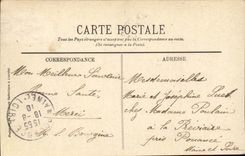 CARTE POSTALE
Tous les Pays étrangers n'acceptent pas la Correspondance au recto.
(Se renseigner à la Poste)
CORRESPONDANCE
ADRESSE
Mon Meilleur Souvenir
Bonne Santé
Merci
Mesdemoiselles
Marie et Joséphine
chez Madame Poulain
à la Prévière
par Pouancé
Maine et Loire